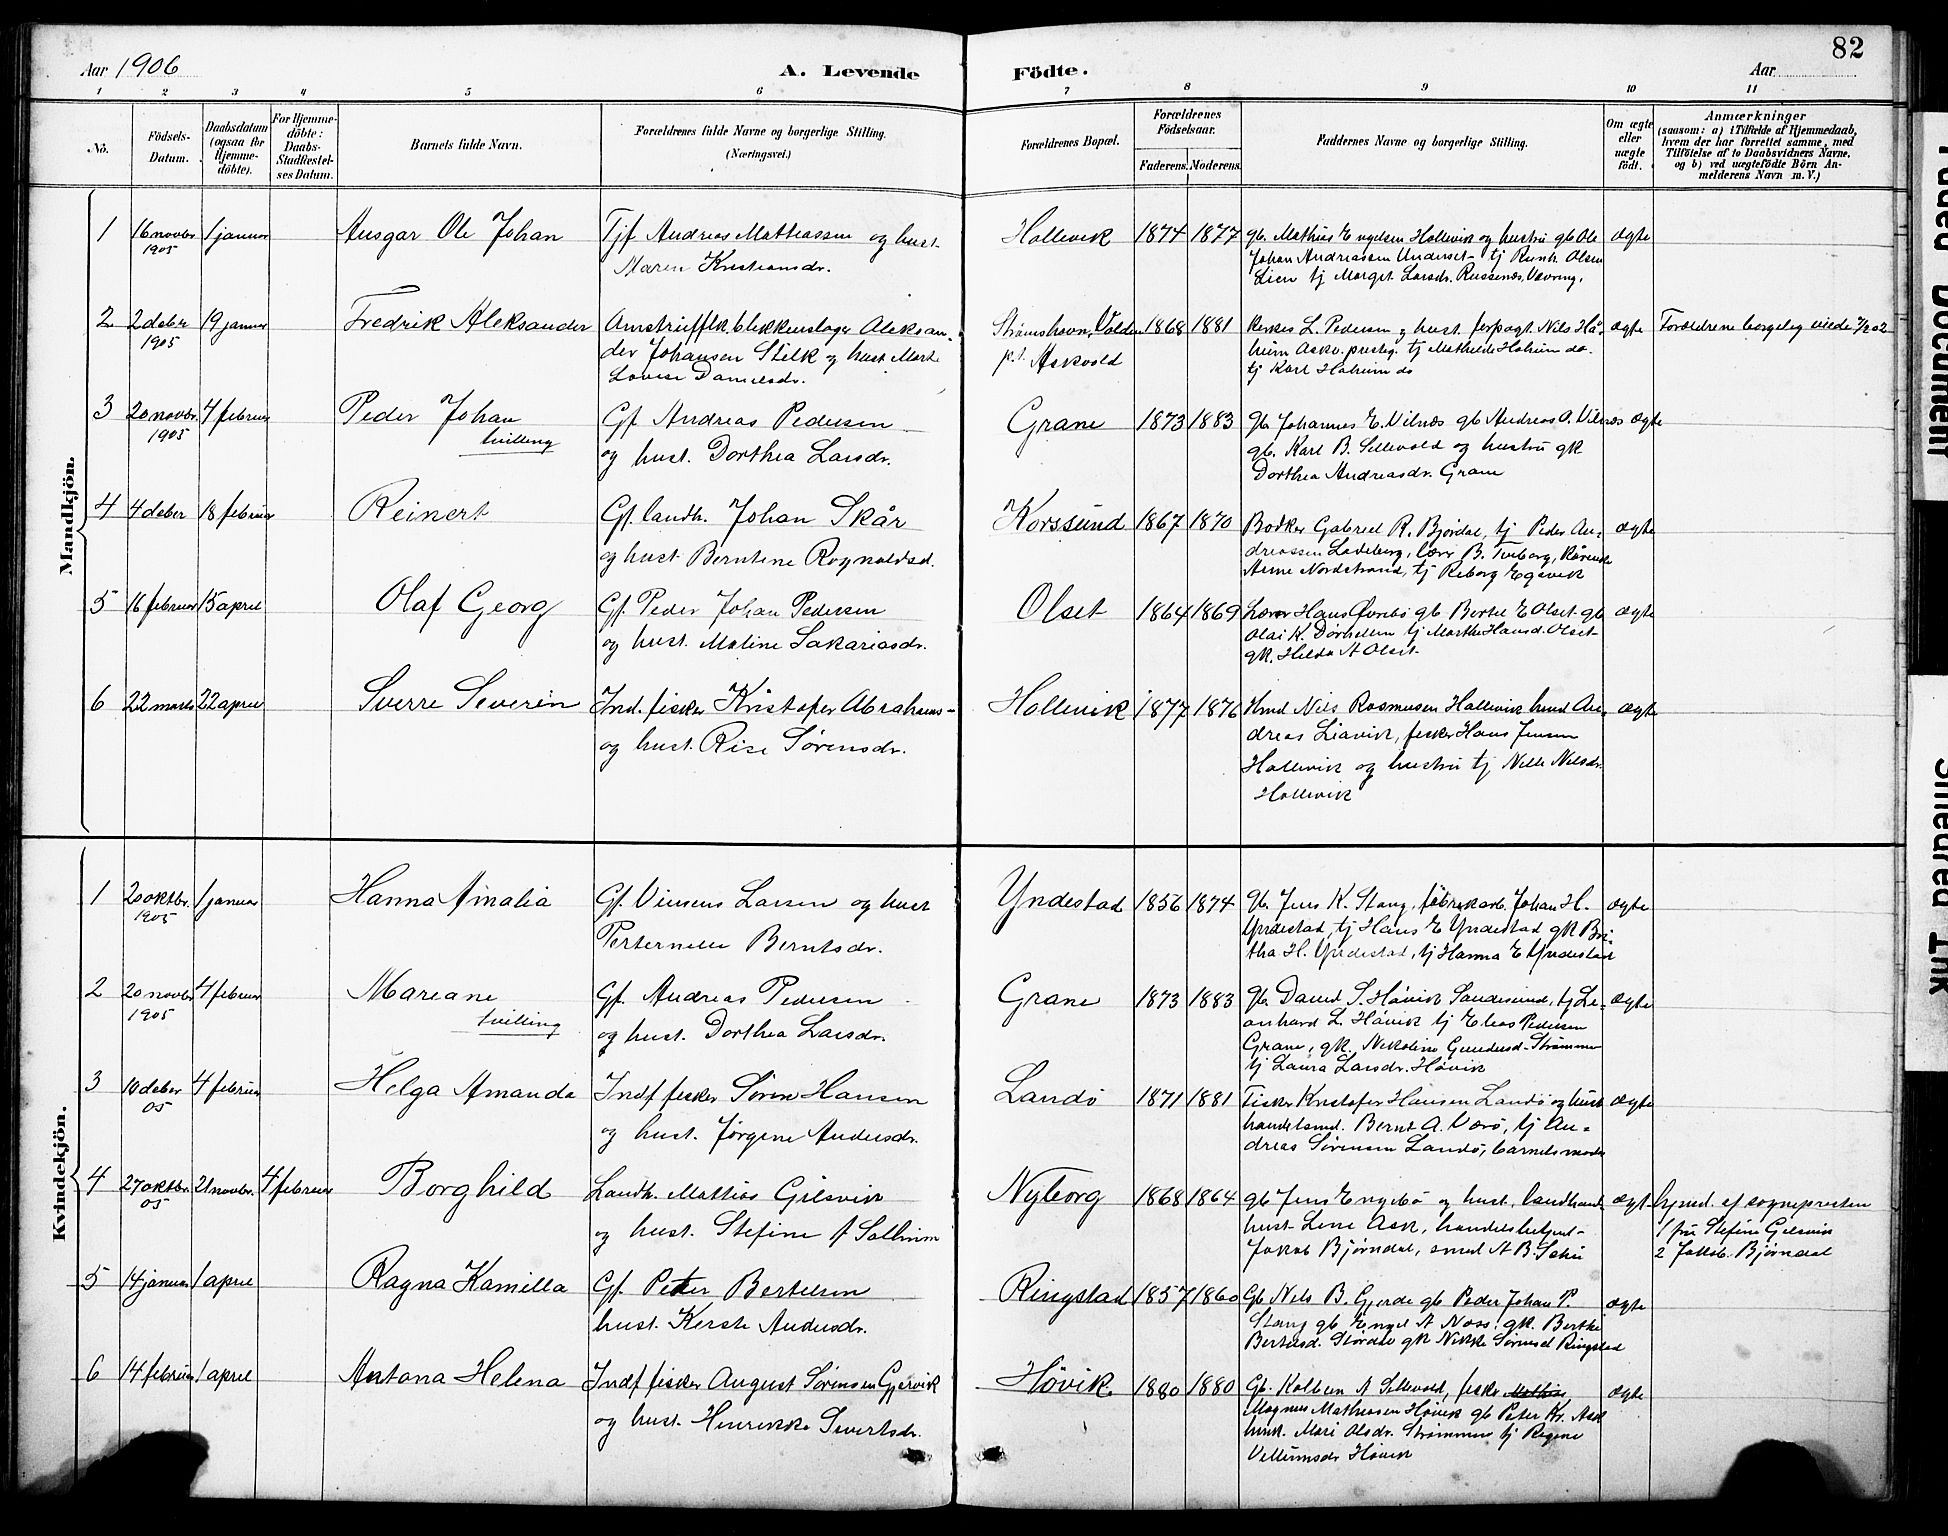 82
Aar 1906
A. Levende
Födte.
Aar
1 2 3 4 5 6 7 8 9 10 11
No.
Födsels-
Datum.
Daabsdatum
(ogsaa for
Hjemme-
döbte).
For Hjemme-
döbte:
Daabs-
Stadfæstel-
ses Datum.
Barnets fulde Navn.
Forældrenes fulde Navne og borgerlige Stilling.
(Næringsvei.)
Forældrenes Bopæl.
Forældrenes
Födselsaar.
Faderens. Moderens.
Faddernes Navne og borgerlige Stilling.
Om ægte
eller
uægte
födt.
Anmærkninger
(saasom: a) i Tilfælde af Hjemmedaab,
hvem der har forrettet samme, med
Tilföielse af to Daabsvidners Navne,
og b) ved uægtefödte Börn An-
melderens Navn m. V.)
Mandkjön.
1 16 novbr 1905 1 januar Ansgar Ole Johan
Tjf Andreas Mathiassen og hust.
Maren Kristiansdr.
Hollevik 1874 1877
gb. Mathias Engelsen Hollevik og hustru gb Ole
Johan Andreassen Underset tj Olsen
Lien tj Marget Larsdr.
ægte
2 2 deber 1905 19 januar Fredrik Aleksander
Aleksan-
der Johansen Stilk og hust Marte
Lovise Danielsdr.
Strømshavn, Volden
p.t. Askvold
1868 1881
L. Pedersen og hust. forpagt. Nils Hå-
heim Askv. presteg. tj Mathilde Håheim do.
tj Karl Håheim do
ægte
Forældrene borgelig viede
3 20 novbr. 1905 4 februar Peder Johan
tvilling
Gf. Andreas Pedersen
og hust. Dorthea Larsdr.
Grane 1873 1883
gb. Johannes E. Vilnæs gb Andreas A. Vilnæs
gb. Karl B. Sellevold og hustru gk
Dorthea Andreasdr. Grane
ægte
4 4 deber 18 februar Reinert
Gf. landh. Johan Skår
og hust. Berntine Rognaldsd.
Korssund 1867 1870
Bødker Gabriel R. Bjordal, tj Peder An-
dreassen Ladeberg, lærer B.
Arne Nordstrand, tj
ægte
5 16 februar 15 april Olaf Georg
Gf. Peder Johan Pedersen
og hust. Maline Sakariasdr.
Olset 1864 1869
Lærer Hans Øvrebø gb Bertel E Olset gb
Olai K. tj Marthe Hansd. Olset
gk. Hilda A Olset
ægte
6 22 marts 22 april Sverre Severin
Ind. fisker Kristofer Abrahams-
og hust. Rise Sørensdr.
Hollevik 1877 1876
Nils Rasmusen Hollevik An-
dreas Liavik, fisker Hans Jensen
Hollevik og hustru tj Nille Nilsdr.
Hollevik
ægte
Kvindekjön.
1 20 oktbr. 1905 1 januar Hanna Amalia
Gf. Vinsens Larsen og hust
Perternelle Berntsdr.
Yndestad 1856 1874
gb. Jens K. Stang, fabrikarb. Johan H.
Yndestad, tj Hans E Yndestad gk Bri-
tha H. Yndestad, tj Hanna E Yndestad
ægte
2 20 novbr 1905 4 februar Mariane
tvilling
Gf. Andreas Pedersen
og hust. Dorthea Larsdr.
Grane 1873 1883
gb. Daniel S. Høivik Sandesund, tj Le-
onhard L. Høivik tj Elias Pedersen
Grane, gk. Nikoline Gundersd. Strømmen
tj Laura Larsdr. Høivik
ægte
3 10 deber 05 4 februar Helga Amanda
Indf fisker Søren Hansen
og hust. Jørgine Andersdr.
Landø 1871 1881
Fisker Kristofer Hansen Landø og hust
handelsmd. Bernt A. Værø, tj An-
dreas Sørensen Landø, barnets moder
ægte
4 27 oktbr. 05 21 novbr. 4 februar Borghild
Landh. Mathias Gilsvik
og hust. Stefine f Solheim
Nyborg 1868 1864
gb Jens Engebø og hust. landhand.
hust. Line Ask, handelsbetjent
Jakob Bjørndal, smed A B.
ægt-
hjemd. af sogneprosten
1 fru Stefine Gilsvik
2 Jakob. Bjørndal
5 14 januar 1 april Ragna Kamilla
Gf. Peter Bertelsen
hust. Kerste Andersdr.
Ringstad 1857 1860
Gb Nils B. Gjerde gb Peder Johan P.
Stang gb Engel A Noss. gk. Berthe
Bertelsd. Størdal gk Nikke Sørensd Ringstad
ægte
6 14 februar 1 april Antona Helena
Indf fisker August Sørensen Gjervik
og hust. Henrikke Sivertsdr.
Høvik 1880 1880
Gb. Kolbein A Sellevold, fisker
Magnus Mathiassen Høivik gb Peter Kr. Ask
hust. Mari Olsdr. Strømmen tj Regine
Villumsdr Høivik
ægte
Faded Document
Smeared Ink